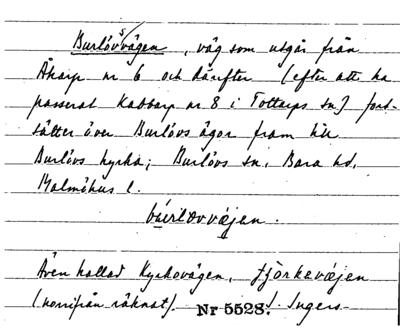 Burlövsvägen, väg som utgår från
Åkarp nr 6 och därefter (efter att ha
passerat Kabbarp nr 8 i Tottarps sn) fort-
sätter över Burlövs ägor fram till
Burlövs kyrka; Burlövs sn, Bara hd,
Malmöhus l.
Även kallad Kyrkovägen,
(norrifrån räknat). Nr 5528. I. Ingers